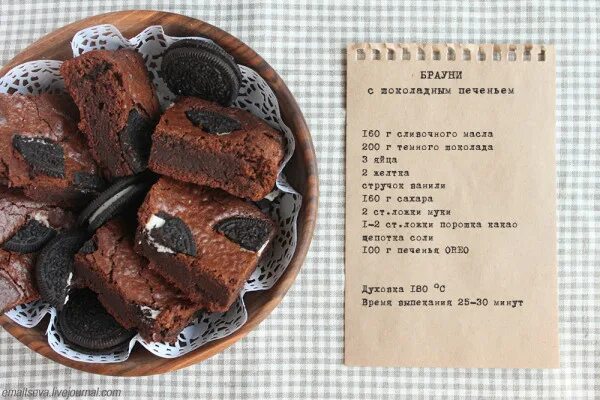 БРАУНИ
с шоколадным печеньем
160 г сливочного масла
200 г темного шоколада
3 яйца
2 желтка
стручок ванили
160 г сахара
2 ст.ложки муки
1-2 ст.ложки порошка какао
щепотка соли
100 г печенья OREO
Духовка 180 °C
Время выпекания 25-30 минут
emaltseva.livejournal.com